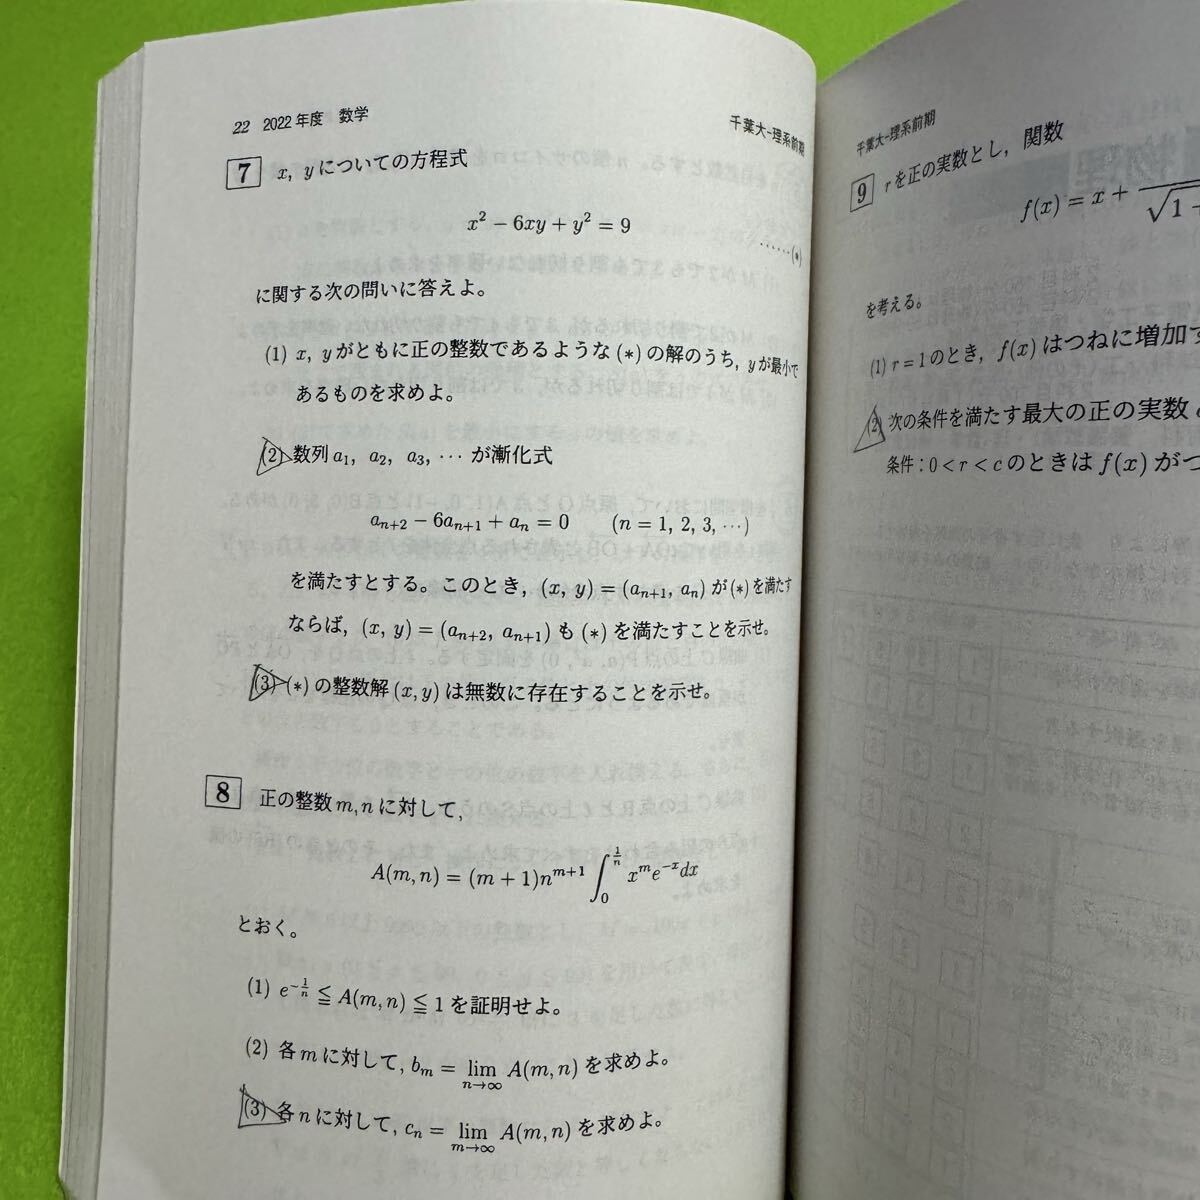 22 2022年度 数学
千葉大-理系前期
7 x, yについての方程式
x² − 6xy + y² = 9 ……(*)
に関する次の問いに答えよ。
(1) x, yがともに正の整数であるような(*)の解のうち, yが最小で
あるものを求めよ。
(2) 数列 a₁, a₂, a₃, … が漸化式
aₙ₊₂ − 6aₙ₊₁ + aₙ = 0 (n = 1, 2, 3, …)
を満たすとする。このとき, (x, y) = (aₙ₊₁, aₙ)が(*)を満たす
ならば, (x, y) = (aₙ₊₂, aₙ₊₁)も(*)を満たすことを示せ。
(3) (*)の整数解(x, y)は無数に存在することを示せ。
8 正の整数m, nに対して,
A(m, n) = (m + 1)n^{m+1} ∫_0^{1/n} x^m e^{−x} dx
とおく。
(1) e^{−1/n} ≦ A(m, n) ≦ 1 を証明せよ。
(2) 各mに対して, b_m = lim_{n→∞} A(m, n)を求めよ。
(3) 各nに対して, c_n = lim_{m→∞} A(m, n)を求めよ。
千葉大-理系前期
9 rを正の実数とし, 関数
f(x) = x +
√1 +
を考える。
(1) r = 1のとき, f(x)はつねに増加す
(2) 次の条件を満たす最大の正の実数
条件 : 0 < r < cのときはf(x)がつ